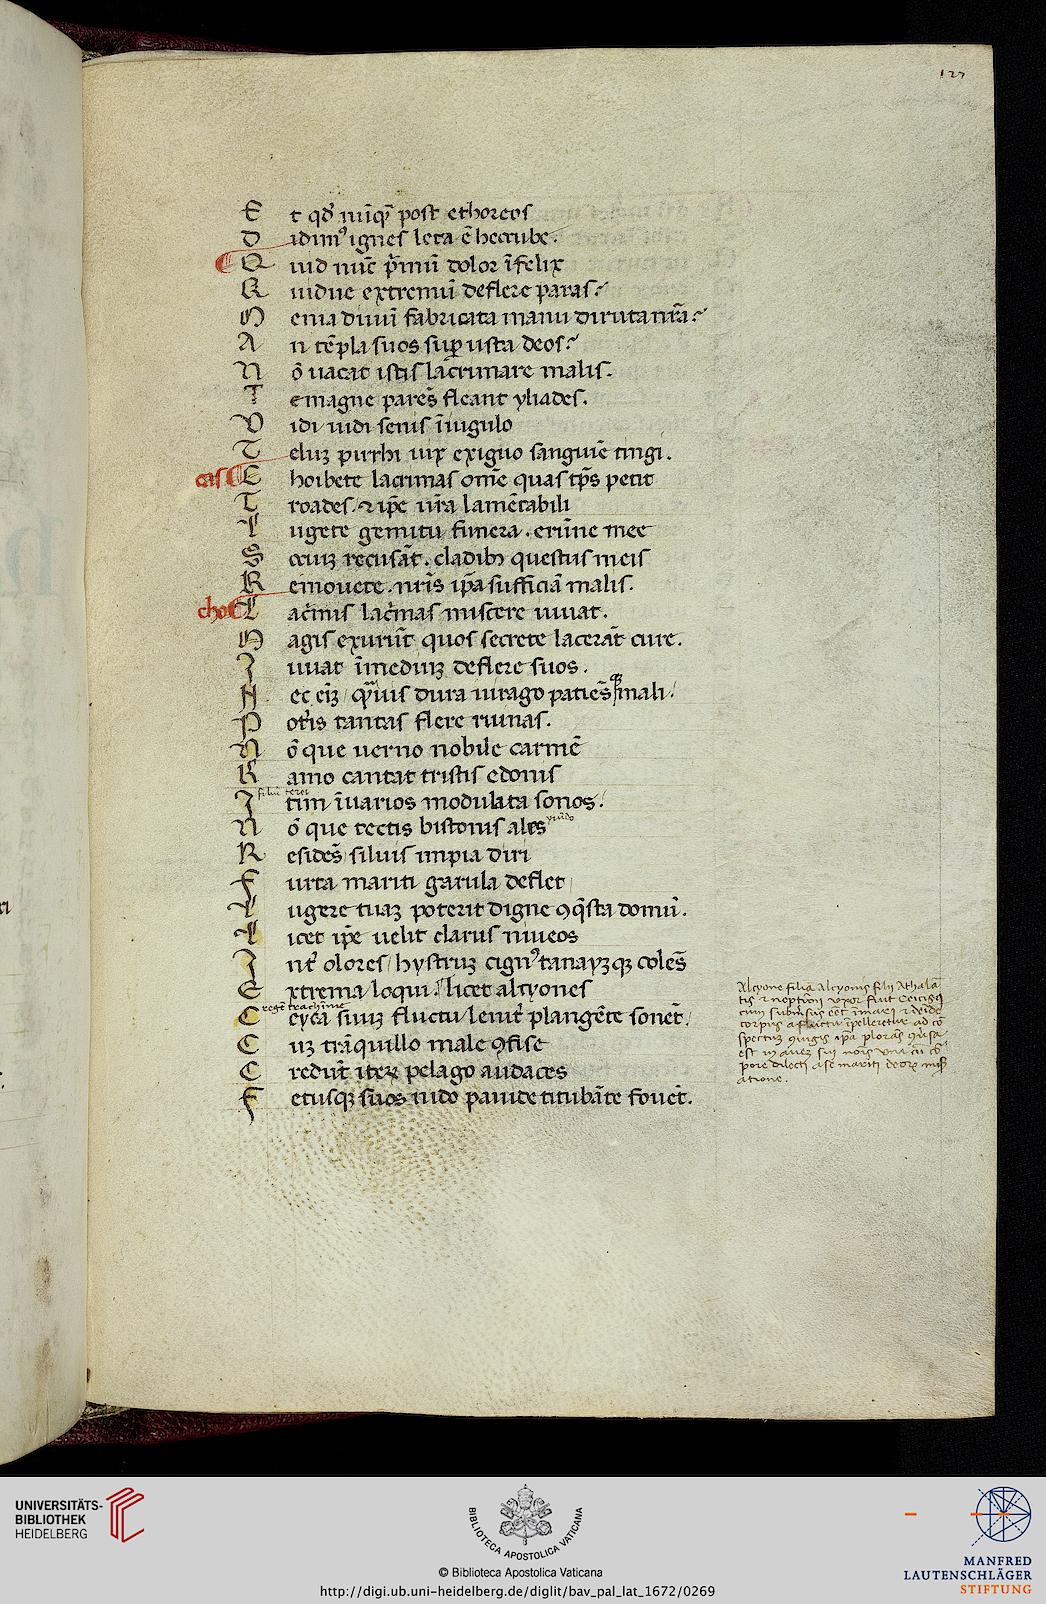 127
E t qđ nūq̄ post ethoreos
D idimꝰ ignes leta ē heccube.
Q uid nūc p̄mū dolor īfelix
Q uidue extremū deflere paras?
M enia diuū fabricata manu diruta nr̄a?
A n tēpla suos suꝑ usta deos?
N ō uacat istis lac̄rimare malis.
T e magne parēs fleant yliades.
V idi uidi senis ī iugulo
T eluꝫ pirrhi uix exiguo sanguīe tingi.
cas C hoibete lacrimas om̄e quas tp̄s petit
T roades. ⁊ ip̄e ur̄a lamētabili
L ugete gemitu funera. erūne mee
S ociuꝫ recusāt. cladibꝫ questus meis
R emouete. nr̄is ip̄a sufficiā malis.
cho L ac̄mis lac̄mas miscere iuuat.
M agis exurūt quos secrete lacerāt cure.
I uuat ī mediuꝫ deflere suos.
N ec eīꝫ q̄uis dura uirago patiēs qꝫ mali
P ot̄is tantas flere ruinas.
N ō que uerno nobile carmē
R amo cantat tristis edonis
filiū terei
I tim ī uarios modulata sonos.
N ō que tectis bistonis ales
R esidēs siluis impia diri
F urta mariti garula deflet
L ugere tuaꝫ poterit digne ꝯq̄sta domū.
L icet ip̄e uelit clarus niueos
I nt̄ olores hystruꝫ cignꝰ tanayꝫqꝫ colēs
E xtrema loqui. licet alcyones
regē trachinie
C eyca suuꝫ fluctu leuit̄ plangēte sonēt.
C uꝫ trāquillo male ꝯfise
C redūt iteꝝ pelago audaces
F etusqꝫ suos nido pauide titubāte fouēt.
Alcyone filia Alcyonis filii Athalā
tis ⁊ neptūni uxor fuit Ceicis q
cum submsus eēt ī mari ⁊ deīde
corpus a fluctu īpelleretur ad cō
spectuꝫ ꝯiugis ip̄a plorās ꝯuersa
est in aueꝫ sui nōis una cū cō
pore dilecti a se mariti deoꝝ mis
atione.
UNIVERSITÄTS-
BIBLIOTHEK
HEIDELBERG
BIBLIOTECA APOSTOLICA VATICANA
© Biblioteca Apostolica Vaticana
http://digi.ub.uni-heidelberg.de/diglit/bav_pal_lat_1672/0269
MANFRED
LAUTENSCHLÄGER
STIFTUNG